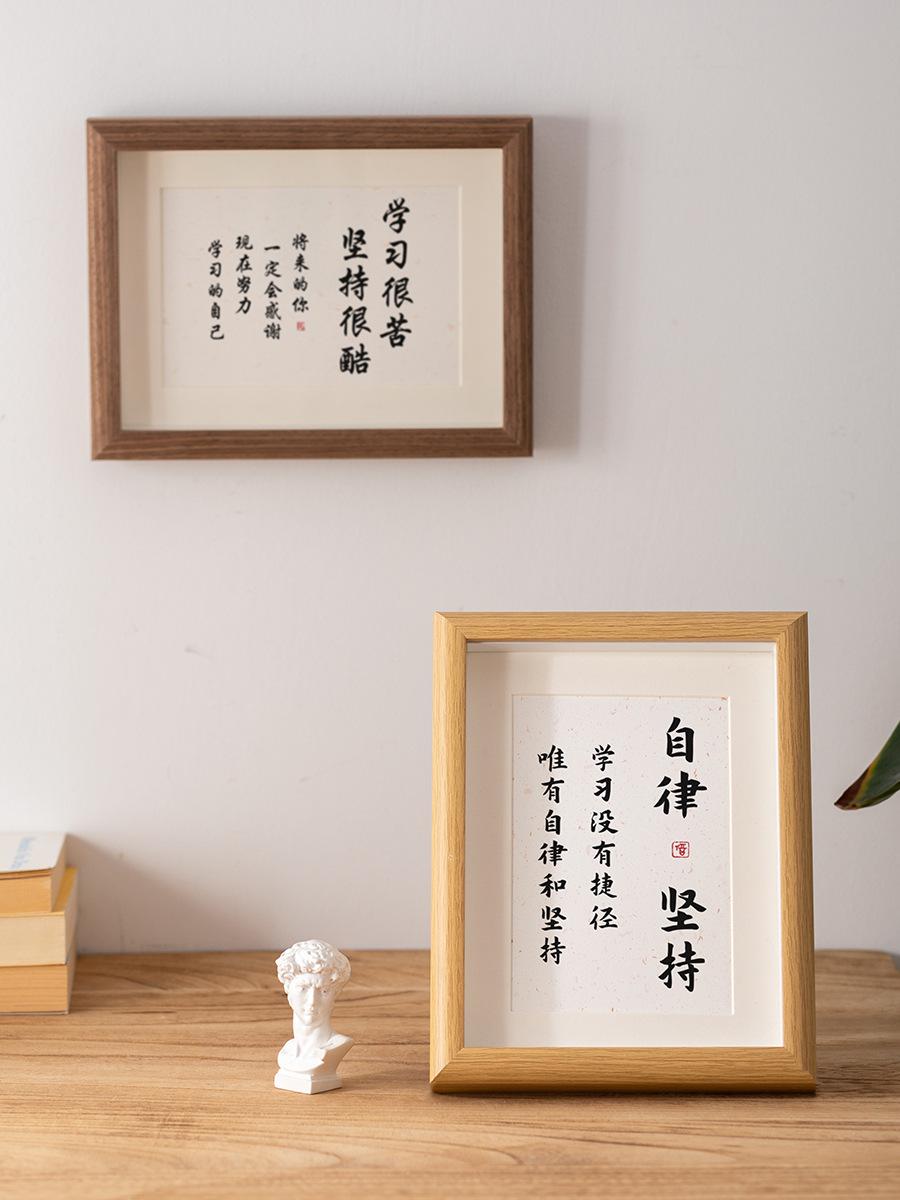 学习很苦
坚持很酷
将来的你
一定会感谢
现在努力
学习的自己
自律 坚持
学习没有捷径
唯有自律和坚持